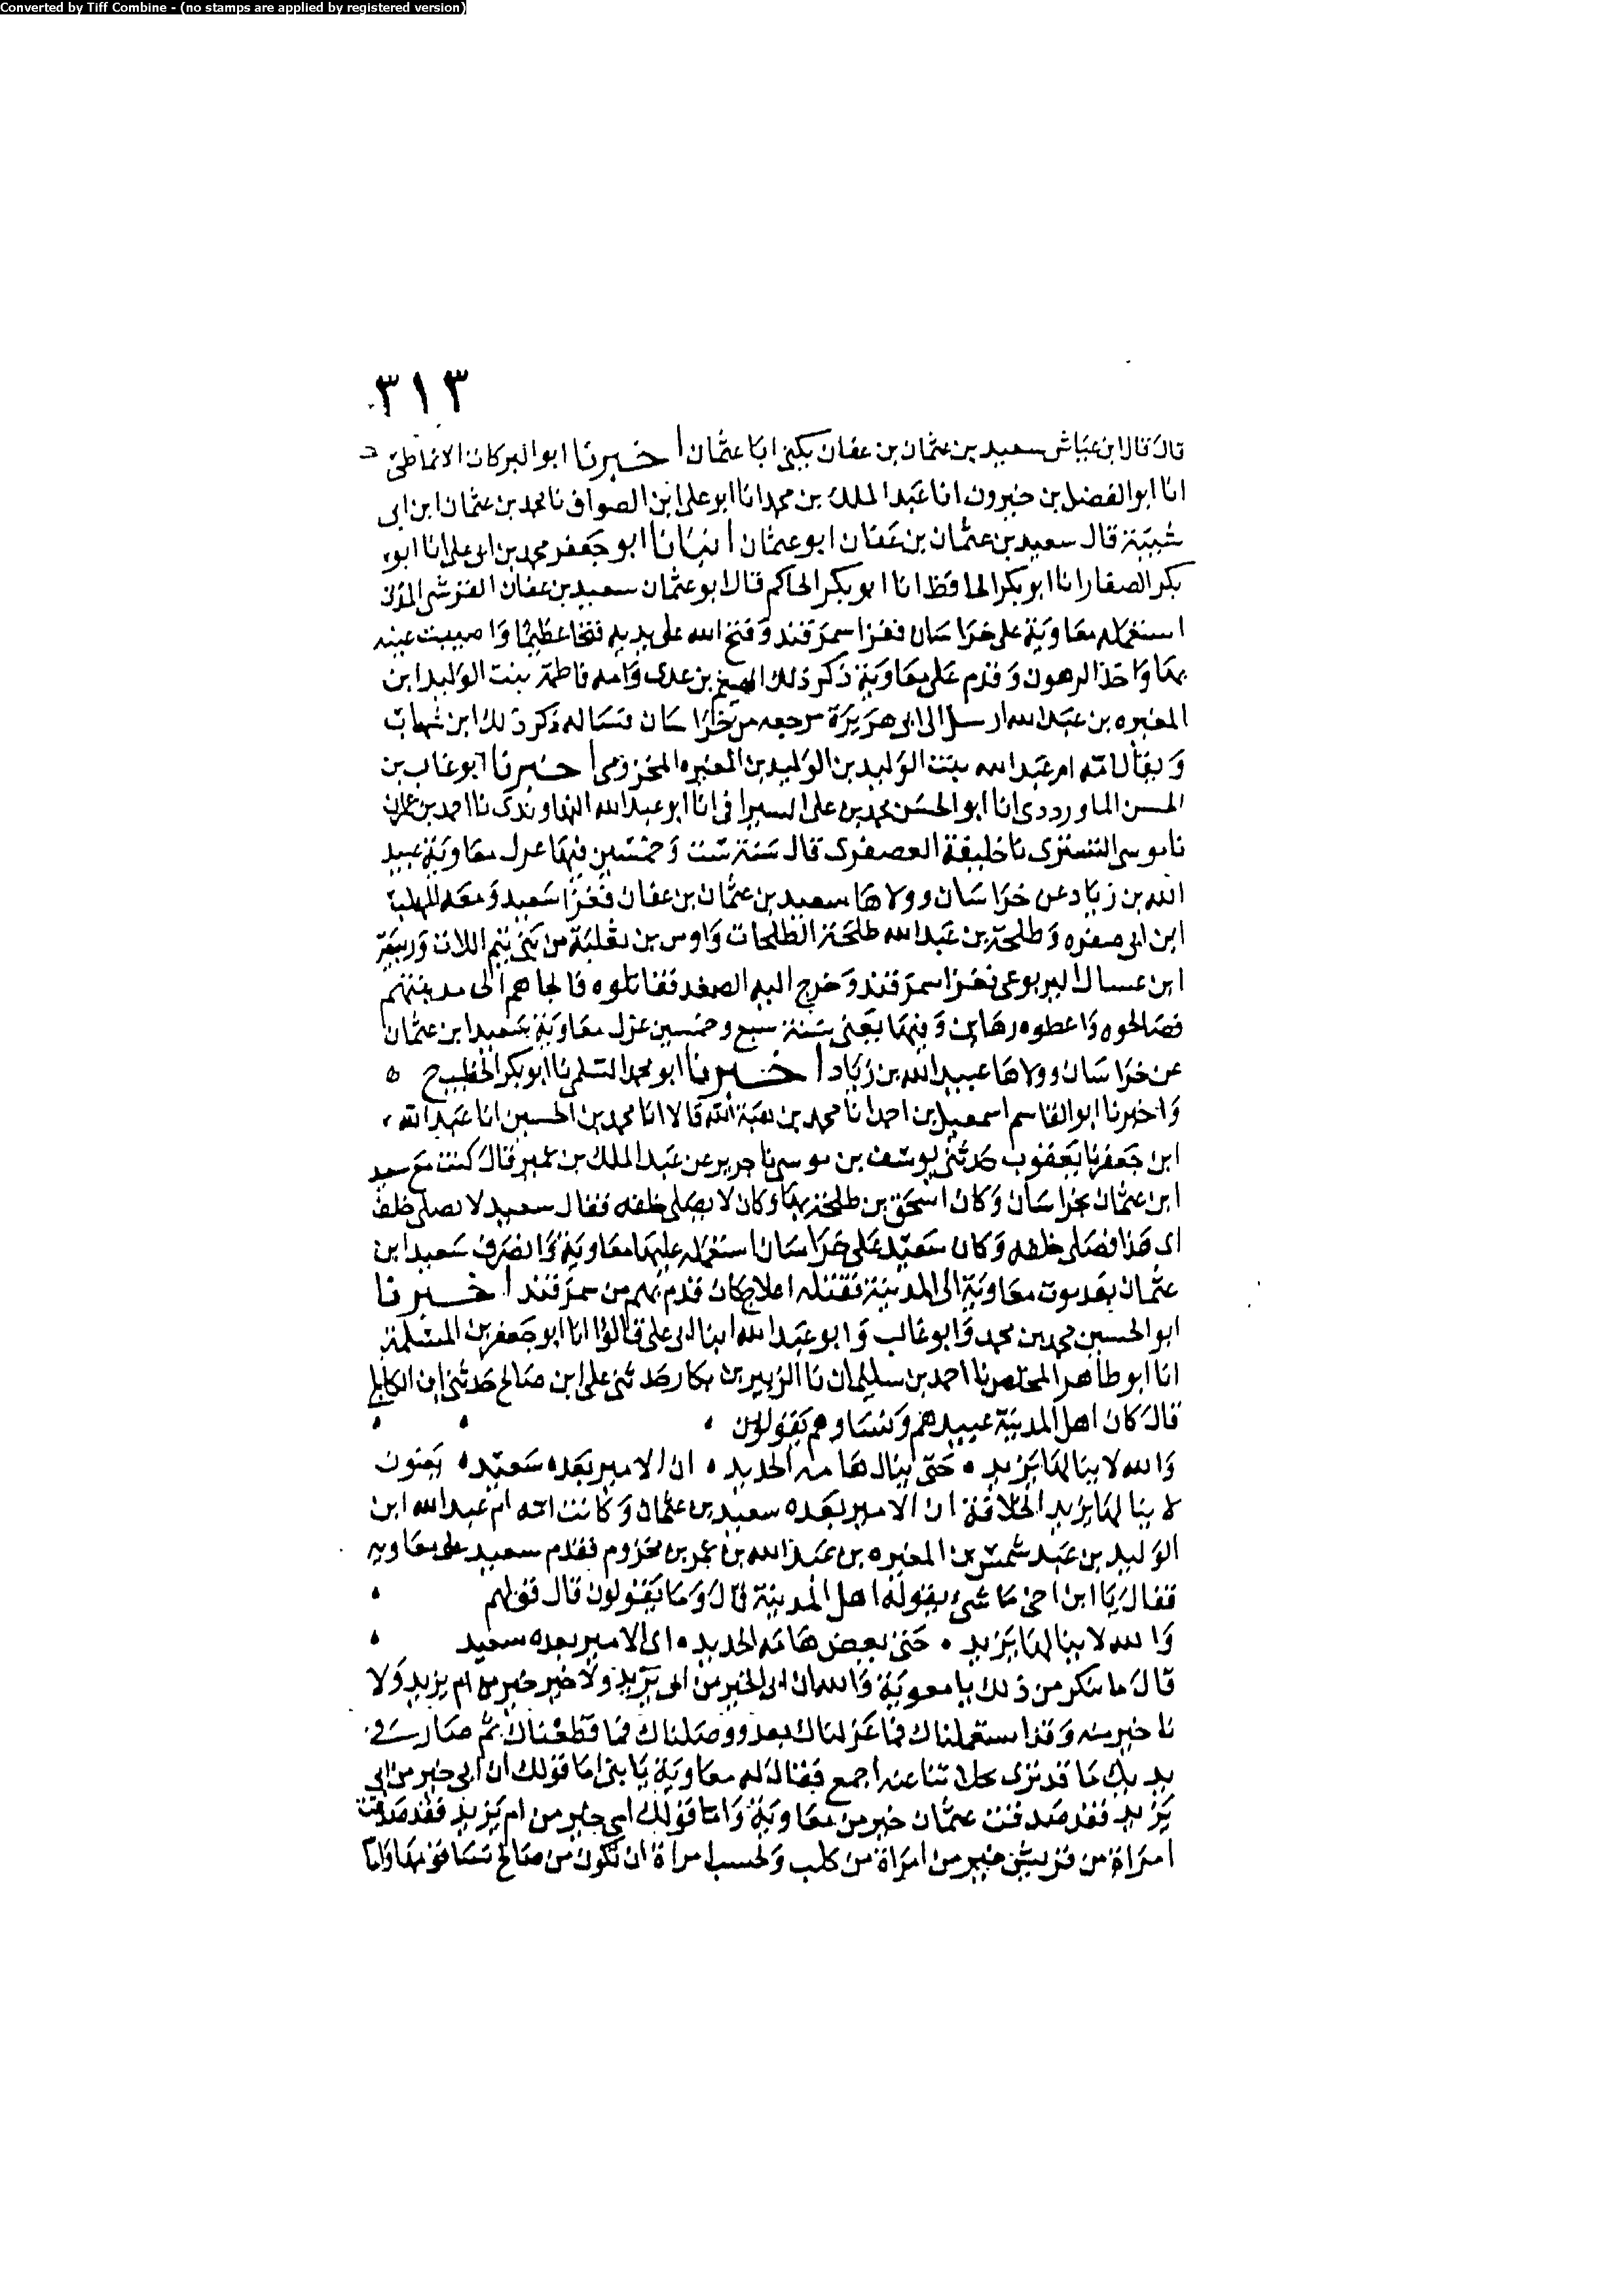 Converted by Tiff Combine - (no stamps are applied by registered version)
٣١٣
قال قال ابن عياش سعيد بن عثمان بن عفان يكنى ابا عثمان اخبرنا ابو البركات الانماطي
انا ابو الفضل بن خيرون انا عبد الملك بن محمد انا ابو علي ابن الصواف نا محمد بن عثمان ابن ابي
شيبة قال سعيد بن عثمان بن عفان ابو عثمان انبانا ابو جعفر محمد بن ابي علي انا ابو
بكر الصفار انا ابو بكر الحافظ انا ابو بكر الحاكم قال ابو عثمان سعيد بن عفان القرشي المدني
استعمله معاوية على خراسان فغزا سمرقند وفتح الله على يديه فتحا عظيما واصيبت عينه
بها واخذ الرهون وقدم على معاوية ذكر ذلك الهيثم بن عدي وامه فاطمة بنت الوليد ابن
المغيره بن عبد الله ارسل الى ابي هريرة مرجعه من خراسان فساله ذكر ذلك ابن شهاب
ويقال امه ام عبد الله بنت الوليد بن الوليد بن المغيره المخزومي اخبرنا ابو غالب بن
الحسن الماوردي انا ابو الحسن محمد بن علي السيرافي انا ابو عبد الله النهاوندي نا احمد بن عمران
نا موسى التستري نا خليفة العصفري قال سنة ست وخمسين فيها عزل معاوية عبيد
الله بن زياد عن خراسان وولاها سعيد بن عثمان بن عفان فغزا سعيد ومعه المهلب
ابن ابي صفره وطلحة بن عبد الله طلحة الطلحات واوس بن ثعلبة من بني تيم اللات وربيعة
ابن عسال اليربوعي فغزا سمرقند وخرج اليه الصغد فقاتلوه فالجاهم الى مدينتهم
فصالحوه واعطوه رهاين وفيها يعني سنة سبع وخمسين عزل معاوية سعيد ابن عثمان
عن خراسان وولاها عبيد الله بن زياد اخبرنا ابو محمد السلمي نا ابو بكر الخطيب ح
واخبرنا ابو القاسم اسمعيل بن احمد انا محمد بن هبة الله قالا انا محمد بن الحسين انا عبد الله
ابن جعفر نا يعقوب حدثني يوسف بن موسى نا جرير عن عبد الملك بن عمير قال كنت مع سعيد
ابن عثمان بخراسان وكان اسحق بن طلحة بها وكان لا يصلي خلفه فقال سعيد لا يصلي خلف
اي هذا فصلى خلفه وكان سعيد على خراسان استعمله عليها معاوية وانصرف سعيد ابن
عثمان بعد موت معاوية الى المدينة فقتله اعلاج كان قدم بهم من سمرقند اخبرنا
ابو الحسين محمد بن محمد وابو غالب وابو عبد الله ابنا ابي علي قالوا انا ابو جعفر بن المسلمة
انا ابو طاهر المخلص نا احمد بن سليمان نا الزبير بن بكار حدثني علي ابن صالح حدثني ابن الكلبي
قال كان اهل المدينة عبيدهم ونساوهم يقولون
والله لا ينالها يزيد حتى ينال هامه الحديد ان الامير بعده سعيد يعنون
لا ينالها يزيد الخلافة ان الامير بعده سعيد بن عثمان وكانت امه ام عبد الله ابن
الوليد بن عبد شمس بن المغيره بن عبد الله بن عمر بن مخزوم فقدم سعيد على معاويه
فقال يا ابن اخي ما شيء يقوله اهل المدينة قال وما يقولون قال قولهم
والله لا ينالها يزيد حتى يعض هامه الحديد ان الامير بعده سعيد
قال ما تنكر من ذلك يا معوية والله ان ابي لخير من ابي يزيد ولا خير من ام يزيد ولا
نا خير منه وقد استعملناك فما عزلناك بعد ووصلناك فما قطعناك ثم صار في
يديك ما قد ترى حلاتنا عنه اجمع فقال له معاوية يا بني اما قولك ان ابي خير من ابي
يزيد فقد صدقت عثمان خير من معاوية واما قولك امي خير من ام يزيد فقد صدقت
امراة من قريش خير من امراة من كلب ولحسب امراة ان تكون من صالح نسا قومها واما